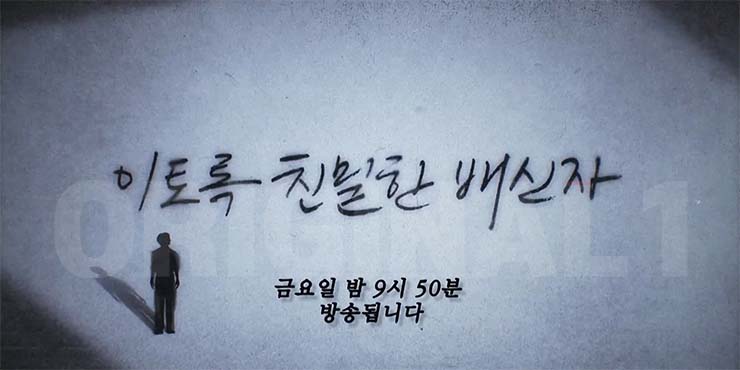 이토록 친밀한 배신자
ORIGINAL 1
금요일 밤 9시 50분
방송됩니다